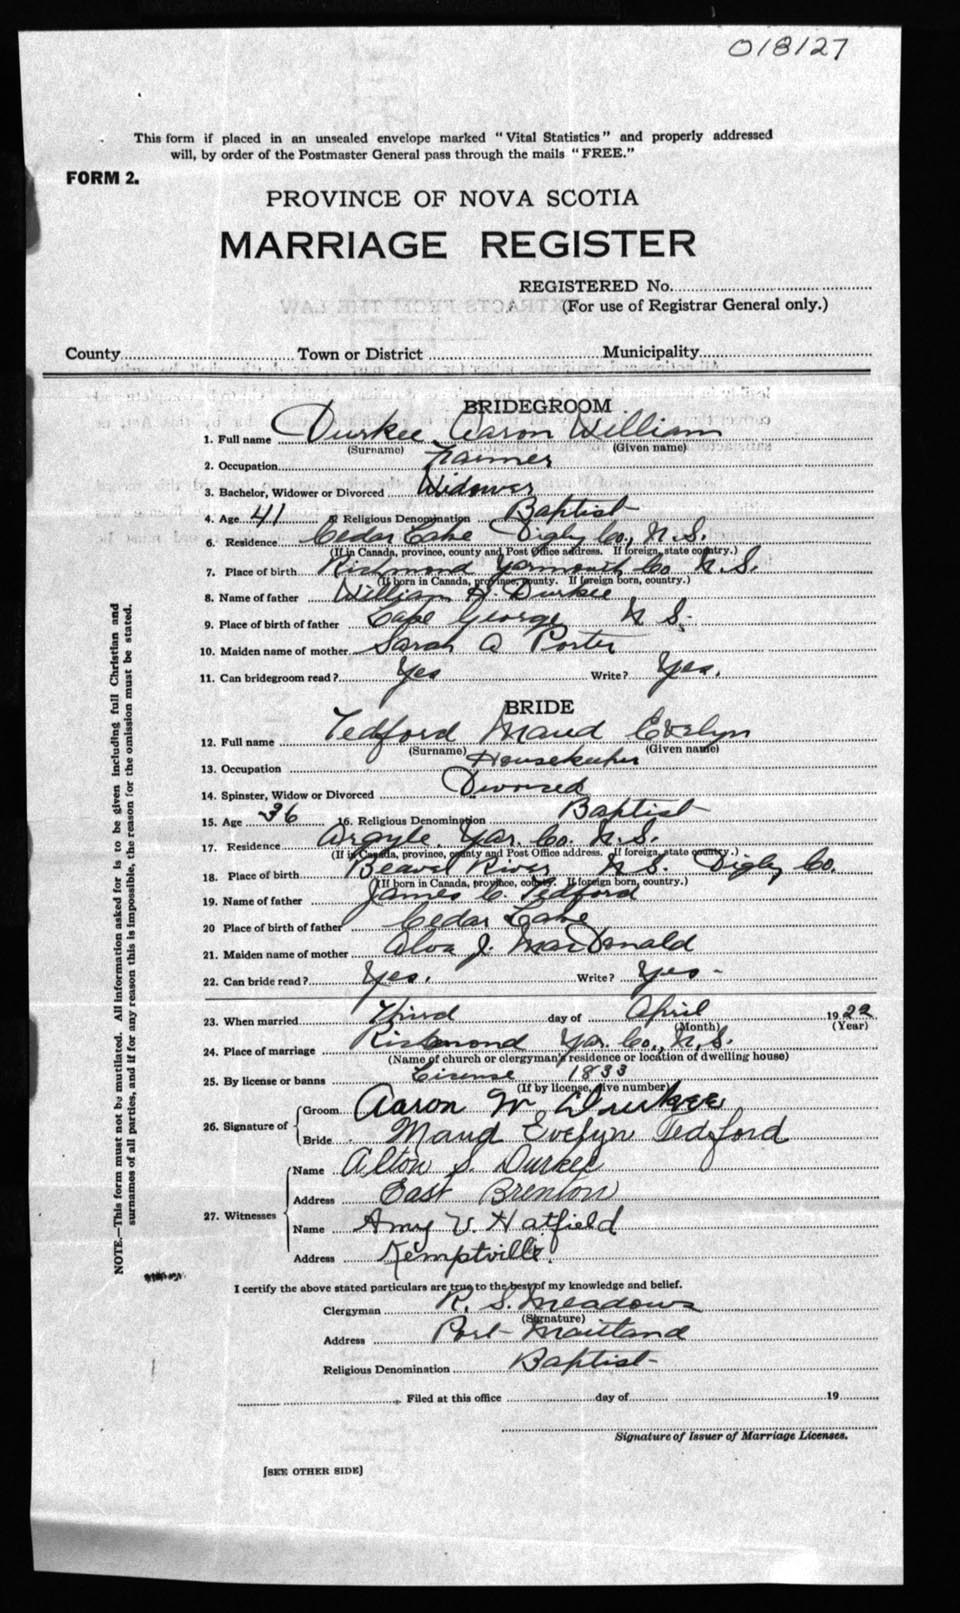 018127
This form if placed in an unsealed envelope marked "Vital Statistics" and properly addressed
will, by order of the Postmaster General pass through the mails "FREE."
FORM 2.
PROVINCE OF NOVA SCOTIA
MARRIAGE REGISTER
REGISTERED No.
(For use of Registrar General only.)
County Town or District Municipality
BRIDEGROOM
1. Full name Durkee Aaron William
(Surname) (Given name)
2. Occupation Farmer
3. Bachelor, Widower or Divorced Widower
4. Age 41 5. Religious Denomination Baptist
6. Residence Cedar Lake Digby Co., N.S.
(If in Canada, province, county and Post Office address. If foreign, state country.)
7. Place of birth Richmond Yarmouth Co N.S.
(If born in Canada, province, county. If foreign born, country.)
8. Name of father William H. Durkee
9. Place of birth of father Cape George N S.
10. Maiden name of mother Sarah A Porter
11. Can bridegroom read? Yes Write? Yes.
BRIDE
12. Full name Tedford Maud Evelyn
(Surname) (Given name)
13. Occupation Housekeeper
14. Spinster, Widow or Divorced Divorced
15. Age 36 16. Religious Denomination Baptist
17. Residence Argyle Yar. Co. N.S.
(If in Canada, province, county and Post Office address. If foreign, state country.)
18. Place of birth Beaver River N.S. Digby Co.
(If born in Canada, province, county. If foreign born, country.)
19. Name of father James C. Tedford
20 Place of birth of father Cedar Lake
21. Maiden name of mother Alva J. MacDonald
22. Can bride read? Yes. Write? Yes-
23. When married Third day of April 1922
(Month) (Year)
24. Place of marriage Richmond Yar. Co., N.S.
(Name of church or clergyman's residence or location of dwelling house)
25. By license or banns License 1833
(If by license, give number)
26. Signature of Groom Aaron W Durkee
Bride Maud Evelyn Tedford
27. Witnesses Name Alton S. Durkee
Address East Brenton
Name Amy V. Hatfield
Address Kemptville.
I certify the above stated particulars are true to the best of my knowledge and belief.
Clergyman R. S. Meadows
(Signature)
Address Port Maitland
Religious Denomination Baptist
Filed at this office day of 19
Signature of Issuer of Marriage Licenses.
[SEE OTHER SIDE]
NOTE.—This form must not be mutilated. All information asked for is to be given including full Christian and
surnames of all parties, and if for any reason this is impossible, the reason for the omission must be stated.